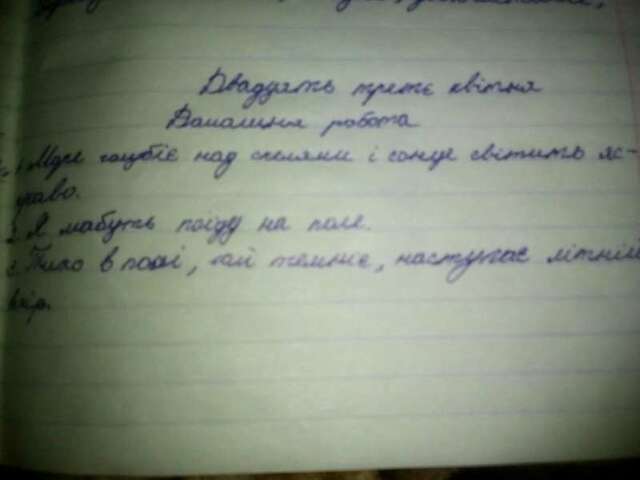 Двадцять третє квітня
Домашня робота
1. Море голубіє над скелями і сонце світить яс-
краво.
2. Я мабуть поїду на поле.
3. Тихо в полі, гай темніє, наступає літній
вечір.